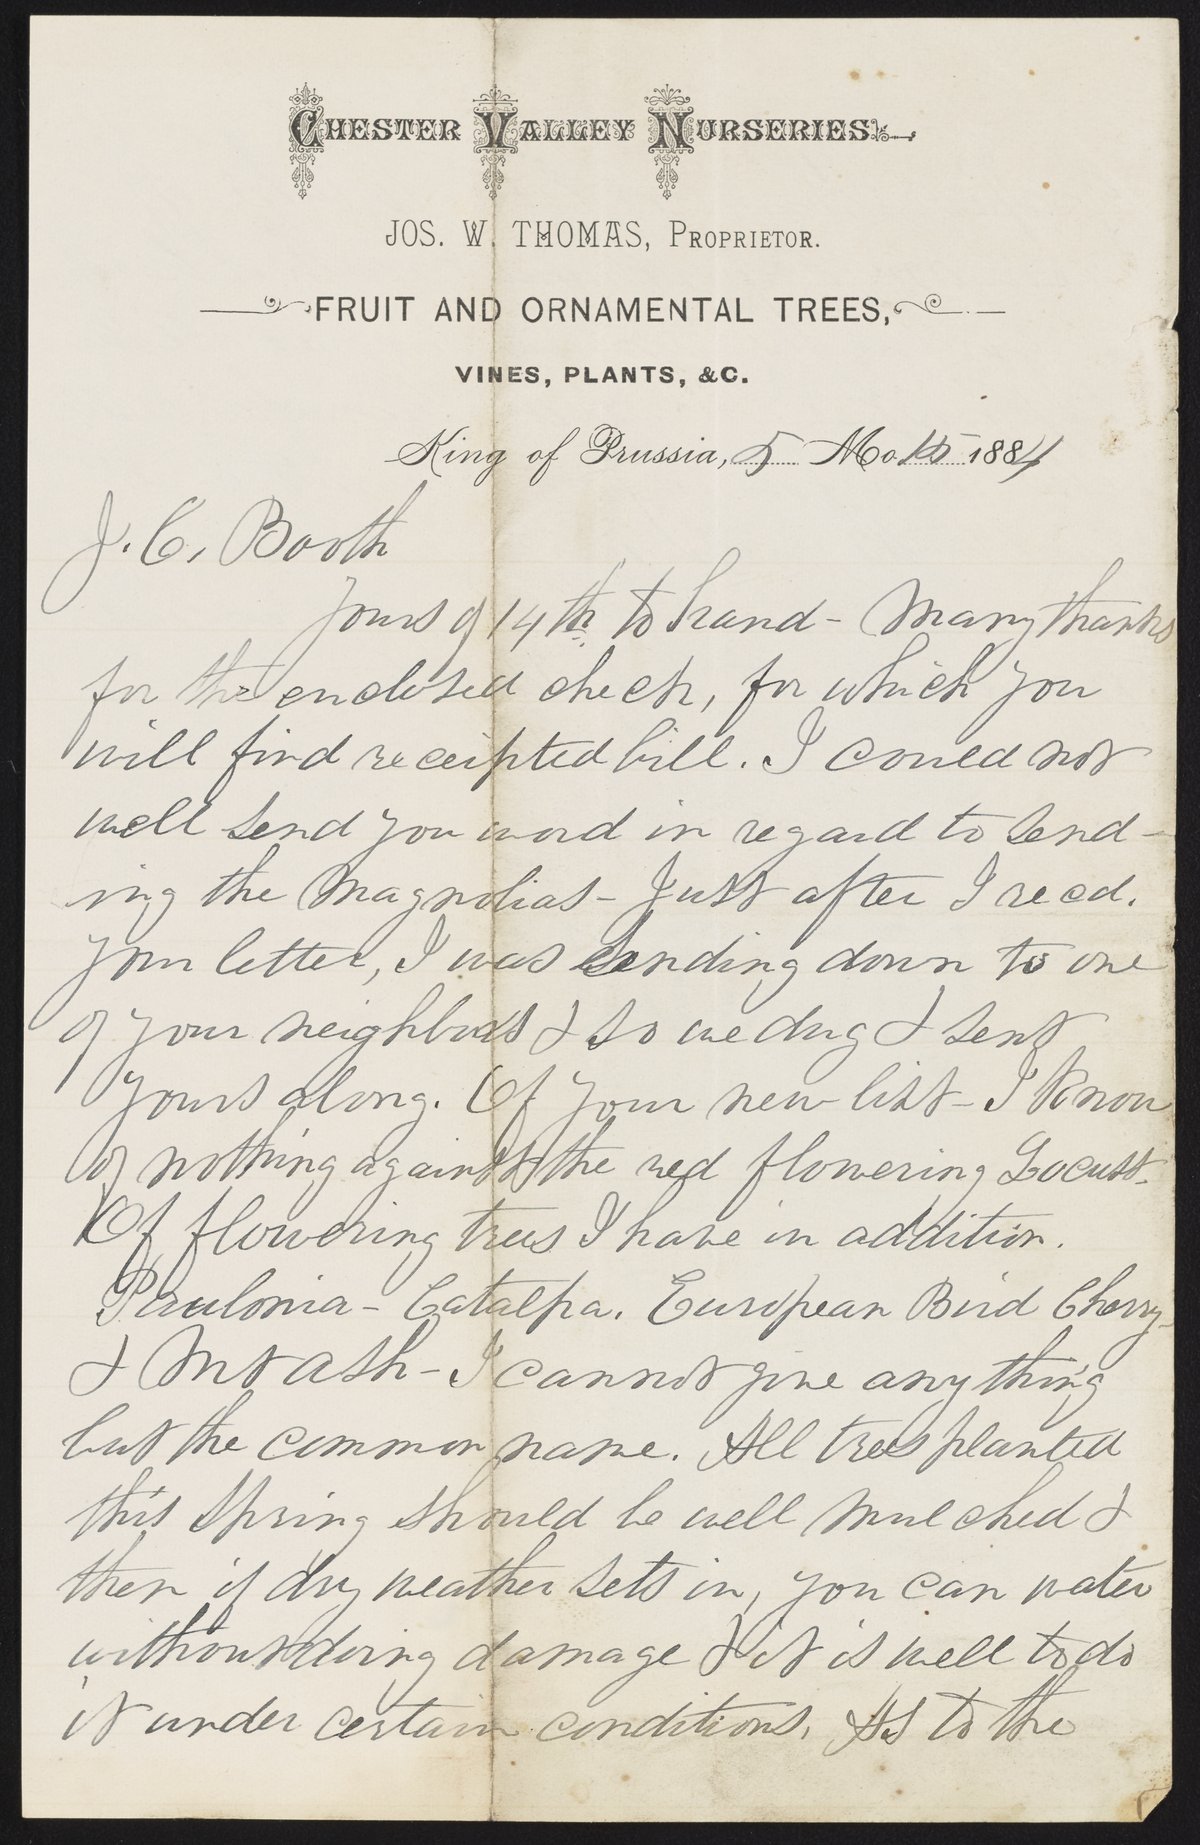 CHESTER VALLEY NURSERIES
JOS. W. THOMAS, PROPRIETOR.
FRUIT AND ORNAMENTAL TREES,
VINES, PLANTS, &C.
King of Prussia, 5 Mo 15 1884
J. C. Booth
Yours of 14th to hand - Many thanks
for the enclosed check, for which you
will find receipted bill. I could not
well send you word in regard to send-
ing the Magnolias - Just after I recd.
your letter, I was sending down to one
of your neighbors & so we dug & sent
yours along. Of your new list - I know
of nothing against the red flowering Locust.
Of flowering trees I have in addition.
Paulonia - Catalpa. European Bird Cherry -
& Mt ash - I cannot give anything
but the common name. All trees planted
this Spring should be well mulched &
then if dry weather sets in, you can water
without doing damage & it is well to do
it under certain conditions. As to the